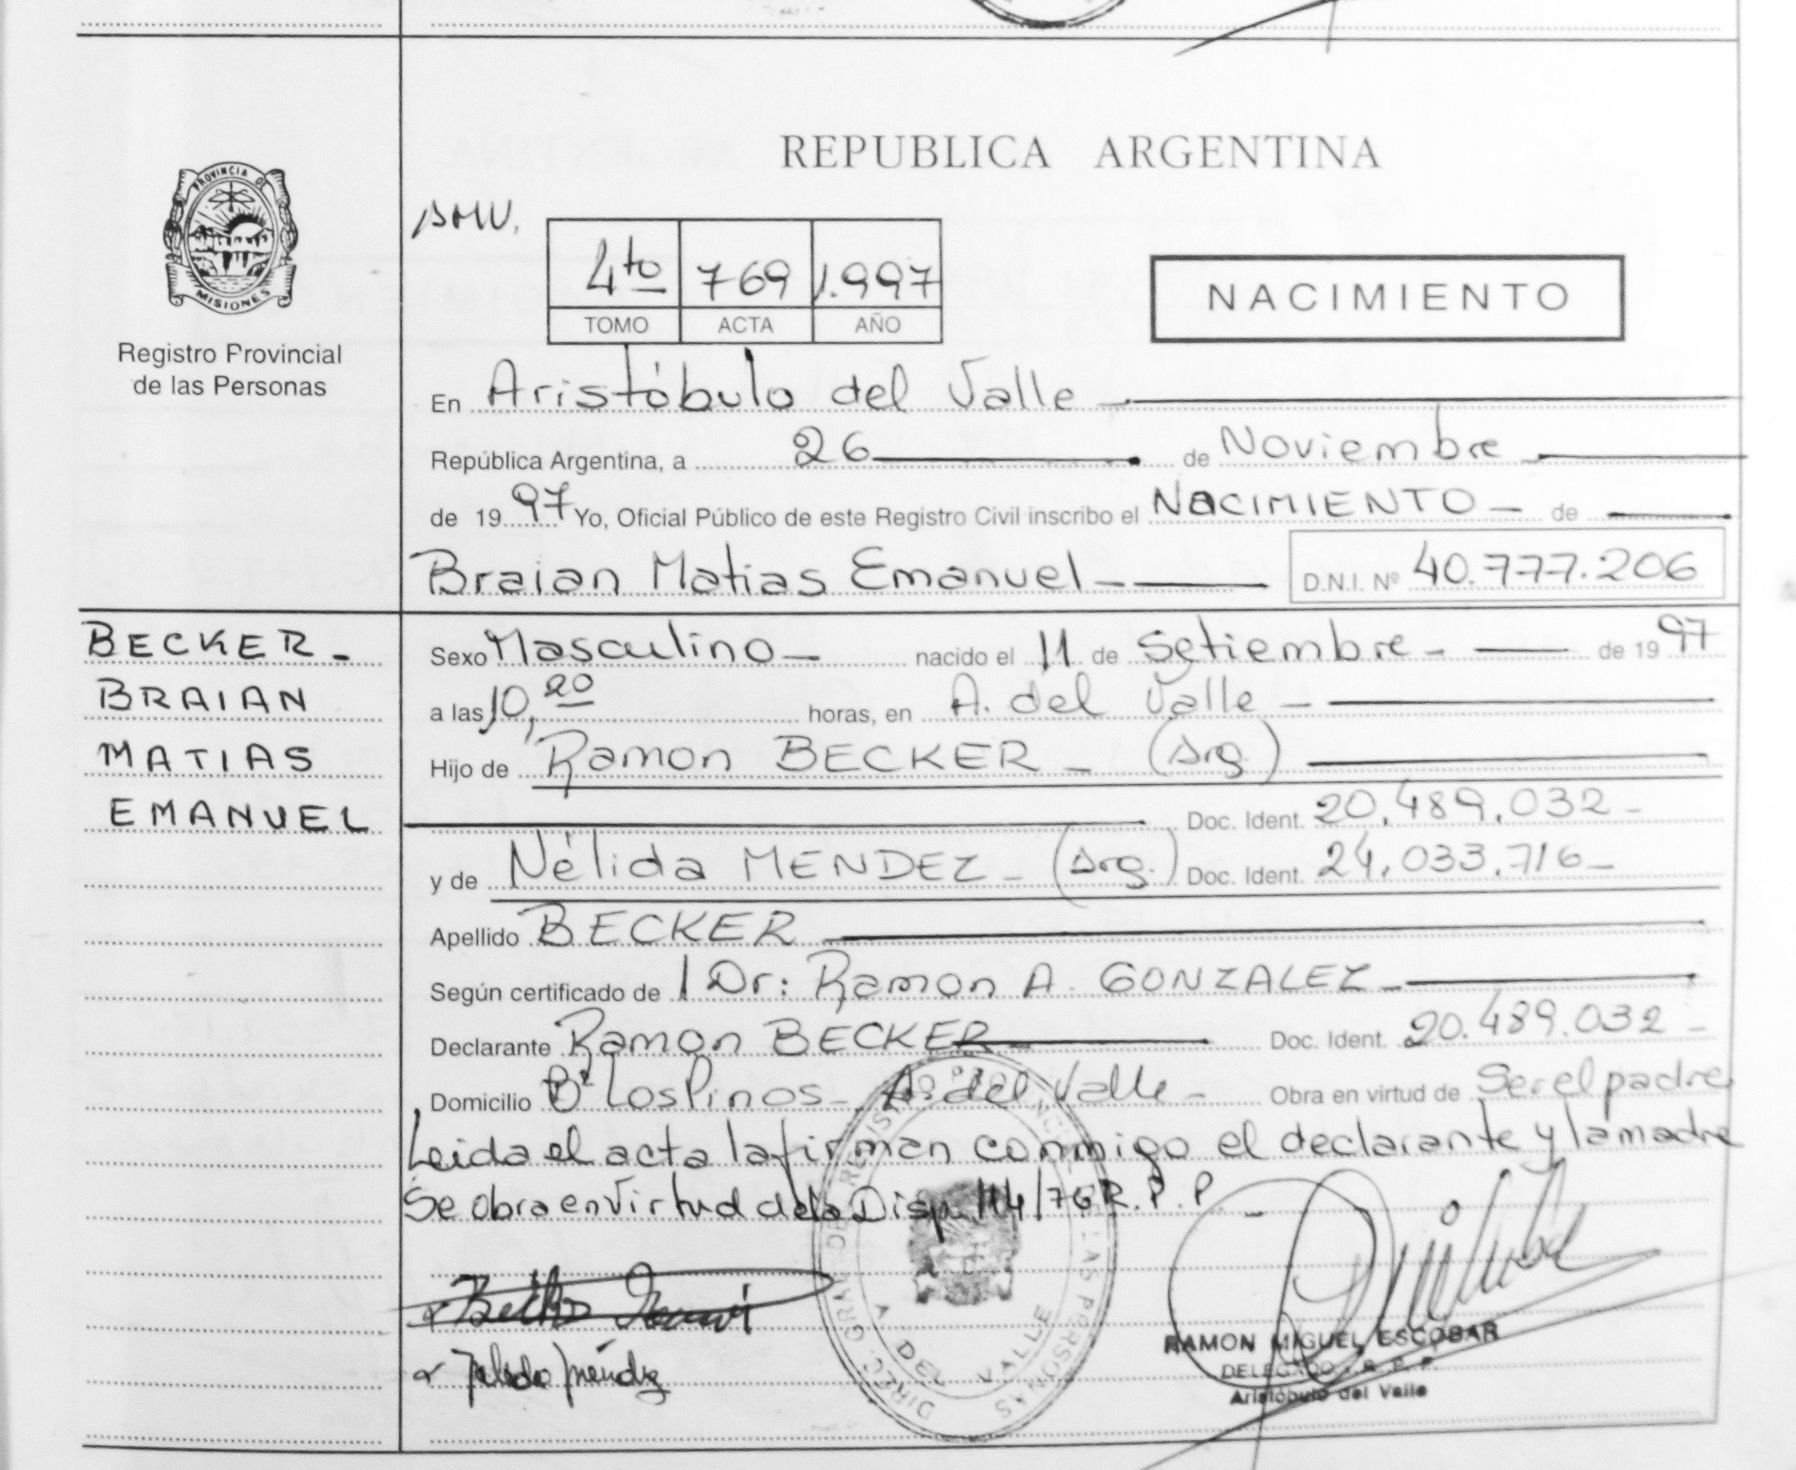 PROVINCIA DE
MISIONES
Registro Provincial
de las Personas
REPUBLICA ARGENTINA
4to 769 1.997
TOMO ACTA AÑO
NACIMIENTO
En Aristóbulo del Valle
República Argentina, a 26 de Noviembre
de 1997 Yo, Oficial Público de este Registro Civil inscribo el NACIMIENTO de
Braian Matias Emanuel D.N.I. Nº 40.777.206
BECKER
BRAIAN
MATIAS
EMANUEL
Sexo Masculino nacido el 11 de Setiembre de 1997
a las 10,20 horas, en A. del Valle
Hijo de Ramon BECKER (Arg)
Doc. Ident. 20.489.032
y de Nélida MENDEZ (Arg.) Doc. Ident. 24.033.716
Apellido BECKER
Según certificado de / Dr: Ramon A. GONZALEZ
Declarante Ramon BECKER Doc. Ident. 20.489.032
Domicilio Bº Los Pinos A. del Valle Obra en virtud de Ser el padre
Leida el acta la firman conmigo el declarante y la madre
Se obra en virtud de la Disp. 114/76 R.P.P.
Méndez
A DEL VALLE
RAMON MIGUEL ESCOBAR
DELEGADO R. P. P.
Aristóbulo del Valle